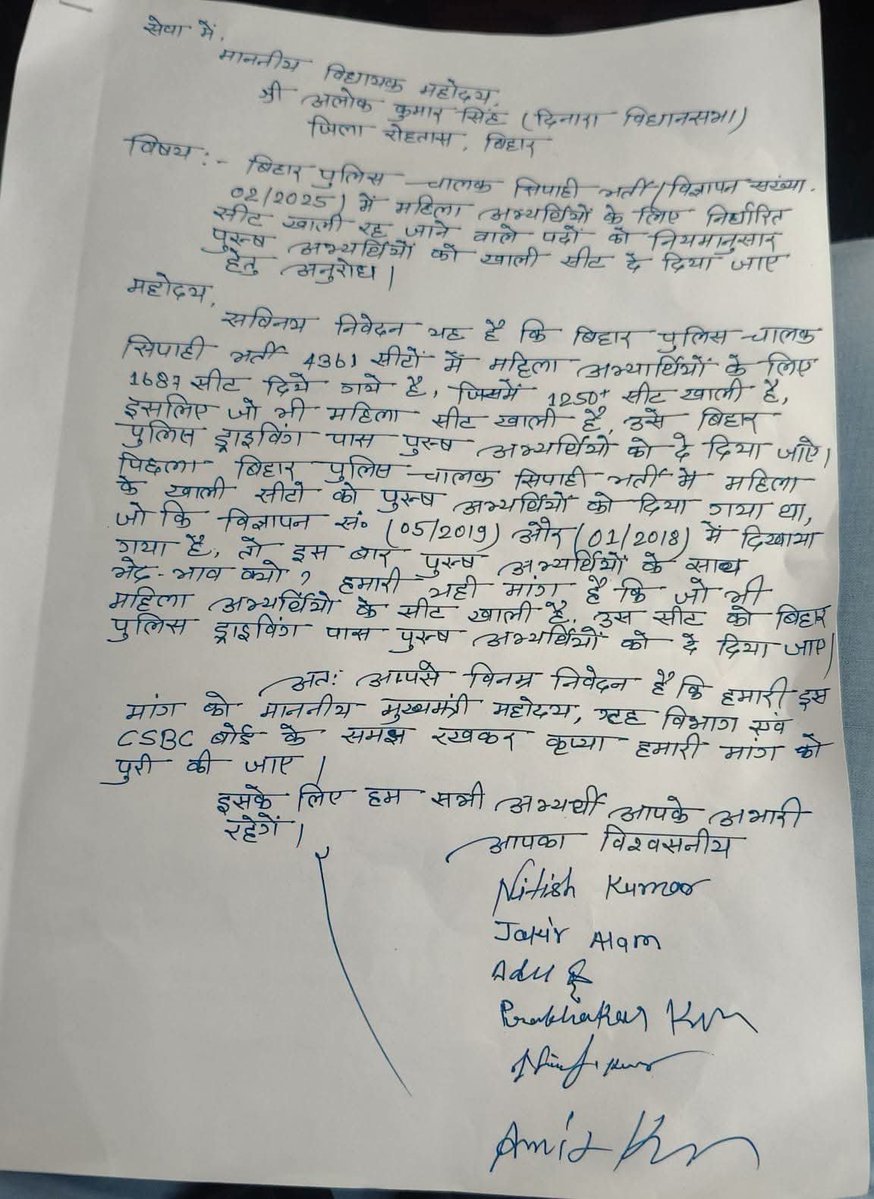 सेवा में,
माननीय विधायक महोदय,
श्री अलोक कुमार सिंह (दिनारा विधानसभा)
जिला रोहतास, बिहार
विषय :- बिहार पुलिस चालक सिपाही भर्ती (विज्ञापन सख्या.
02/2025) में महिला अभ्यर्थियों के लिए निर्धारित
सीट खाली रह जाने वाले पदों को नियमानुसार
पुरुष अभ्यर्थियों को खाली सीट दे दिया जाए
हेतु अनुरोध।
महोदय,
सविनय निवेदन यह है कि बिहार पुलिस चालक
सिपाही भर्ती 4361 सीटों में महिला अभ्यार्थियों के लिए
1687 सीट दिये गये है, जिसमें 1250+ सीट खाली है,
इसलिए जो भी महिला सीट खाली है, उसे बिहार
पुलिस ड्राइविंग पास पुरुष अभ्यर्थियों को दे दिया जाऐ।
पिछला बिहार पुलिस चालक सिपाही भर्ती में महिला
के खाली सीटो को पुरुष अभ्यर्थियों को दिया गया था,
जो कि विज्ञापन सं॰ (05/2019) और (01/2018) में दिखाया
गया है, तो इस बार पुरुष अभ्यर्थियों के साथ
भेद-भाव क्यो? हमारी यही मांग है कि जो भी
महिला अभ्यर्थियो के सीट खाली है, उस सीट को बिहार
पुलिस ड्राइविंग पास पुरुष अभ्यर्थियों को दे दिया जाए।
अतः आपसे विनम्र निवेदन है कि हमारी इस
मांग को माननीय मुख्यमंत्री महोदय, गृह विभाग एवं
CSBC बोर्ड के समक्ष रखकर कृप्या हमारी मांग को
पुरी की जाए।
इसके लिए हम सभी अभ्यर्थी आपके अभारी
रहेगें।
आपका विश्वसनीय
Nitish Kumar
Jakir Alam
Prabhakar Kum
Amit Kum